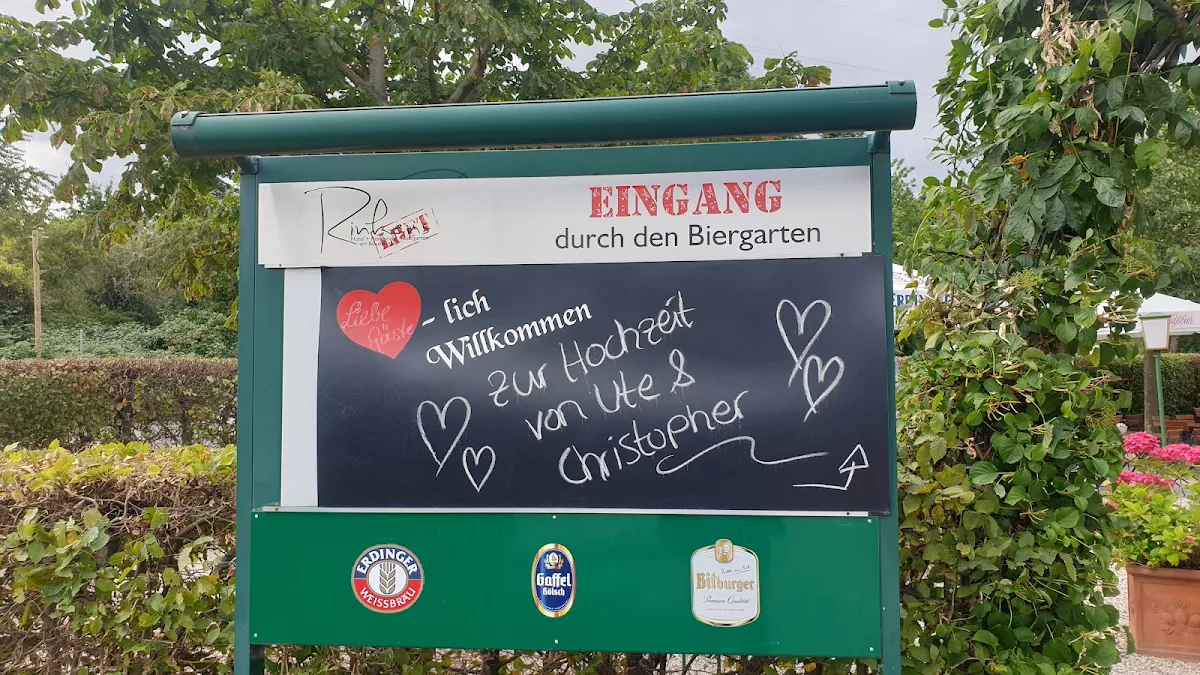 EINGANG
durch den Biergarten
Liebe
Gäste
- lich
Willkommen
zur Hochzeit
von Ute &
Christopher
ERDINGER
WEISSBRÄU
Gaffel
Kölsch
Bitburger
Premium Qualität